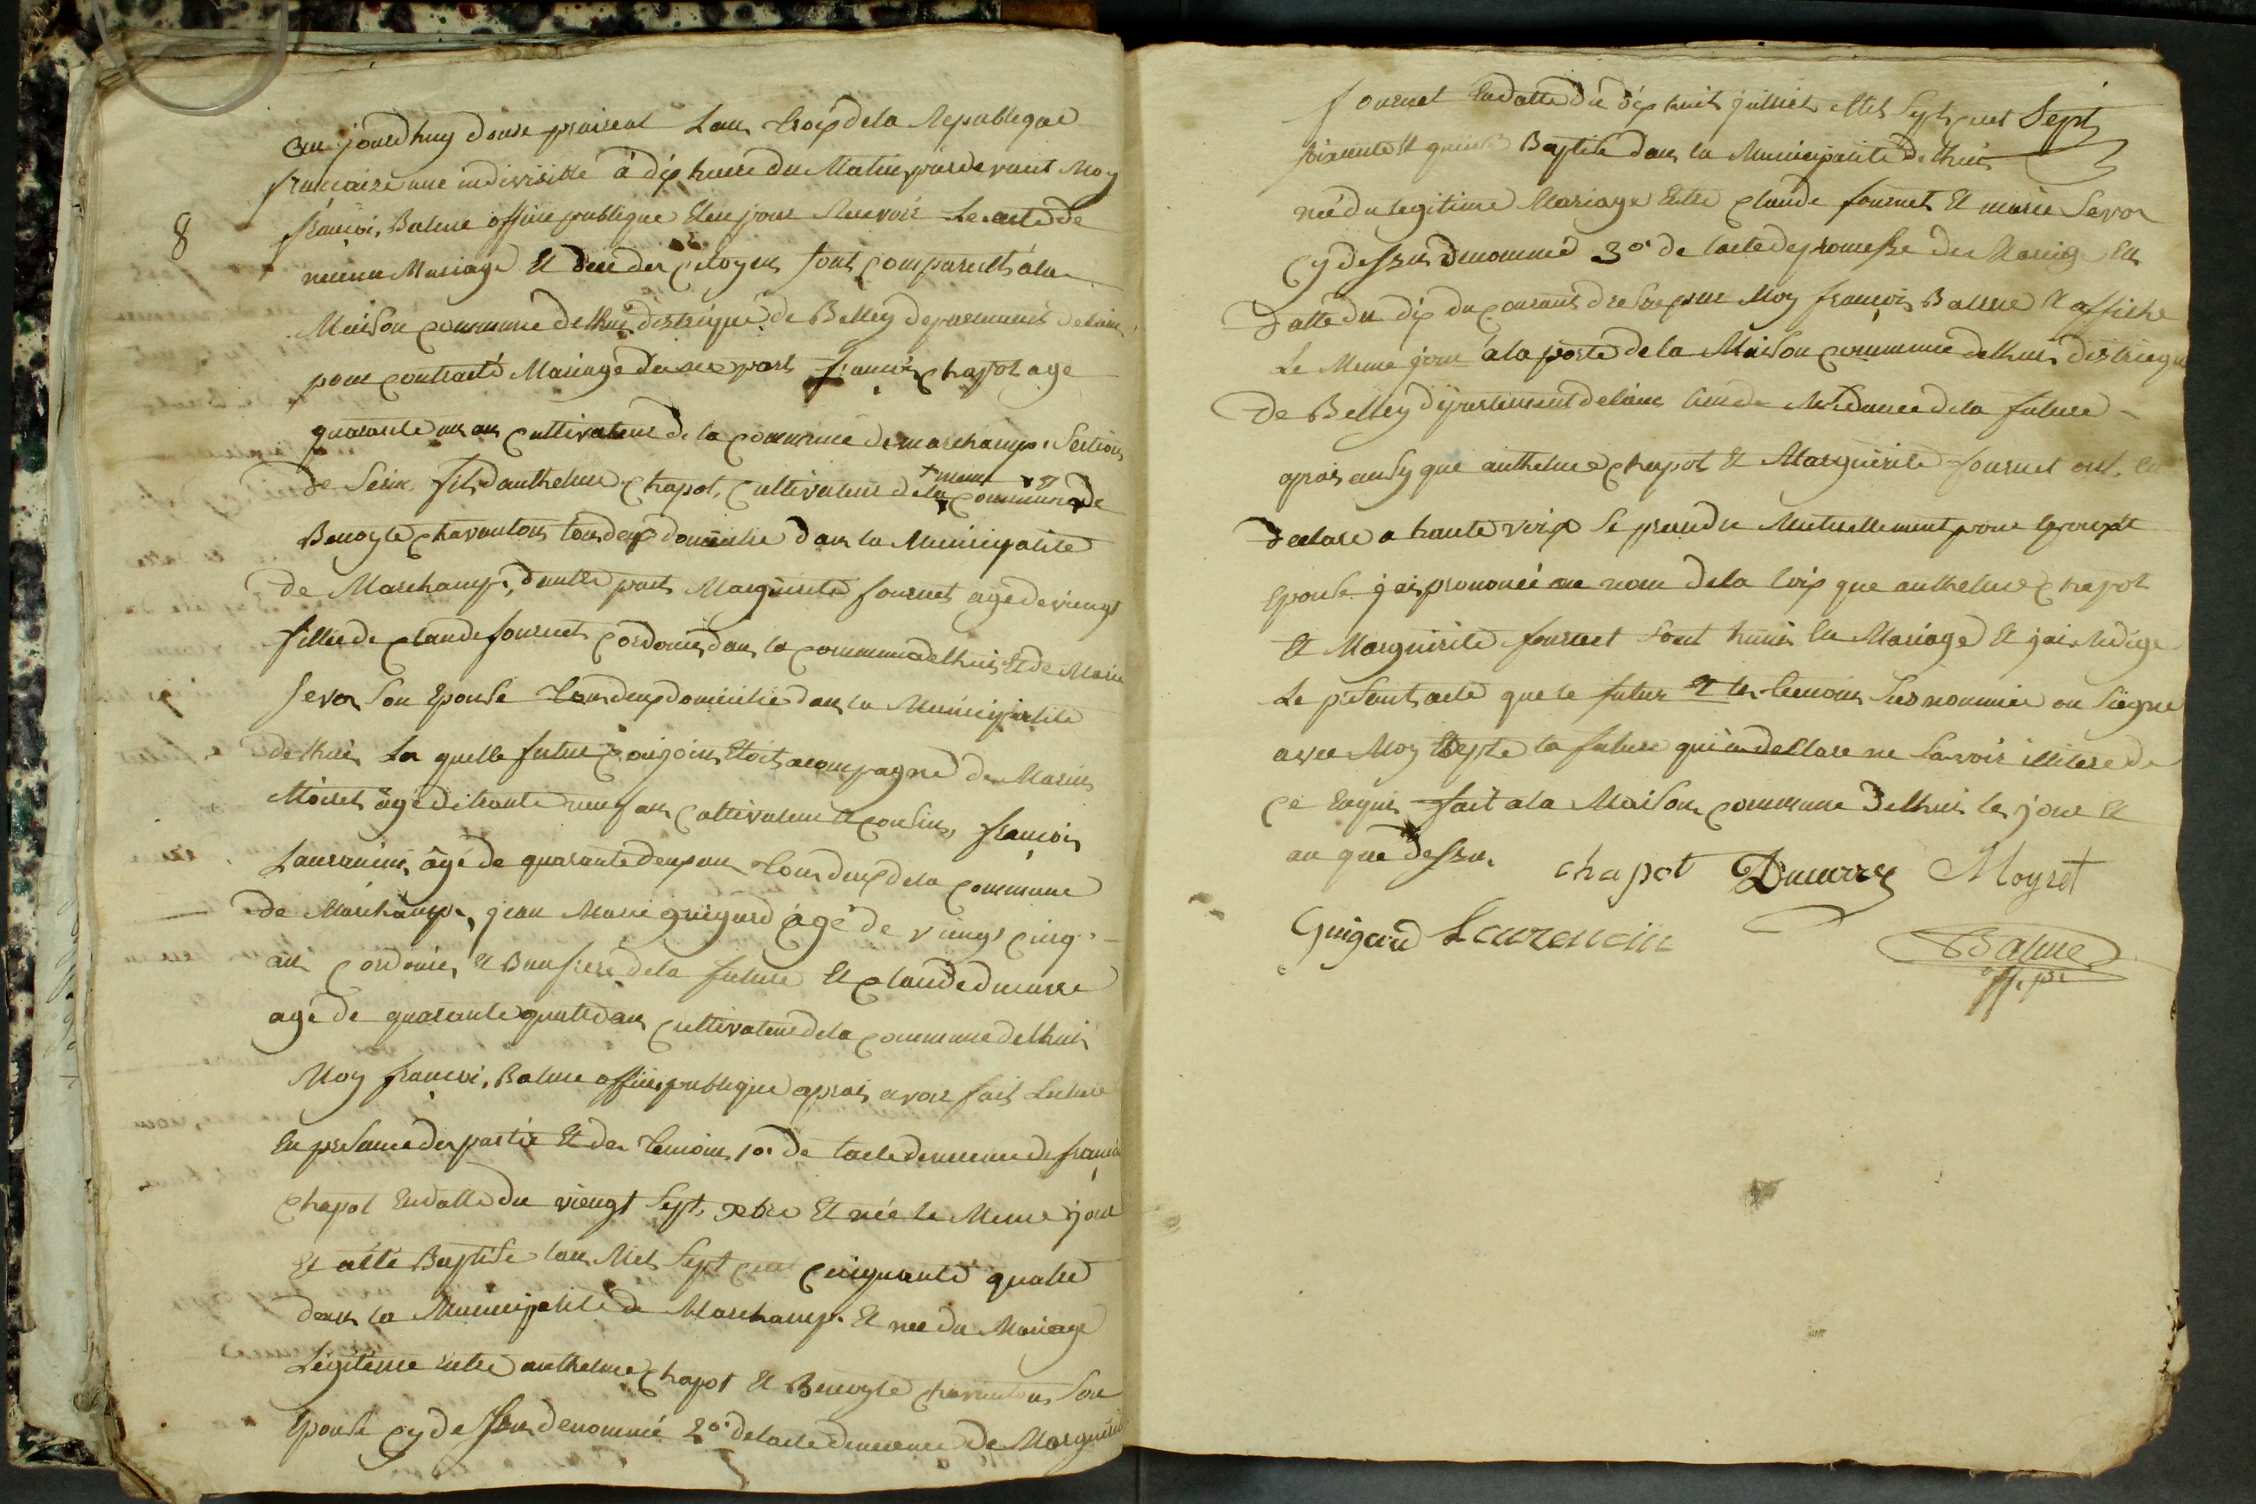 aujourdhuy douse prairial Lan troix dela Republique
francaize une indivisible a dix heure du Matin pardevant Moy
8
francoi, Balme office publique Elu pour Recevoir Le acte de
Mariage Et des Citoyens sont Comparents á la
Maison Commune delhuis districque de Belley departement delain
pour Contracté Mariage d'une part francoi Chapot age
quarante un an Cultivateur de la Commune de marchamp. Section
de Serin fils d'anthelme Chapot, Cultivateur de la Commune Et de
Benoyte Chavanton tous deux domicilie dans la Municipalité
de Marchamp, d'autre part Marguerite fournet age de viengt
fillie de Claude fournet Cordonier dans la Commune delhuis Et de Marie
Sevoz son Epouse tous deux domicilie dans la Municipalité
delhuis La quelle futur Conjoins Etoit acompagne de Marin
Moiret âgé de trante neuf an Cultivateur Et Cousin, francois
Lauranein âgé de quarante deux an tous deux dela Commune
de Marchamp, jean Marie guigard âgé de viengt cinq
an Cordonier Et Beaufrere dela future Et Claude dumarre
agé de quarante quatre an Cultivateur dela Commune delhuis
Moy francoi, Balme office publique aprais avoir fait Lecture
En presance des partie Et des temoins 1o. de lacte de de francoi
Chapot Endatte du viengt Sept, xbre Et née le Meme jour
Et atté Baptise lan Mil Sept Cent Cinquante quatre
dans la Municipalité de Marchamp. Et née du Mariage
Légitime Entre anthelme Chapot Et Benoyte Chavanton son
Epouse Cy dessus denommé 2o. de lacte de de Marguerite
fournet Endatte du dix huit julliet Mil Sept Cent Sept
soixante Et quinse Baptisé dans la Municipalité delhuis
née du legitime Mariage Entre Claude fournet Et marie Sevoz
Cy dessus denommé 3o. de lacte de promesse du Mariage En
datte du dix du Courant dressé par Moy francois Balme Et affiche
Le Meme jour á la porte de la Maison Commune delhuis districque
de Belley departement delain lieu de Residance dela future
aprais ausy que anthelme Chapot Et Marguerite fournet ont En
declare a haute voix se prandre Mutuellement pour Epoux Et
Epouse jai prononcé au nom dela loix que anthelme Chapot
Et Marguerite fournet sont hunis En Mariage Et jai Redige
Le present acte que le futur Et les temoins Susnommée on Siegne
avec Moy Excepte la future qui a declare ne Savoir illitere de
Ce Enquis fait a la Maison Commune delhuis les jour Et
an que dessus. Chapot Dumarre Moyret
Guigard Laurencin Balme
off. pe